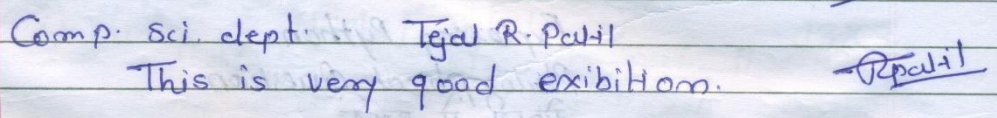 Comp. Sci. dept. Tejal R. Patil
This is very good exibition. RPatil